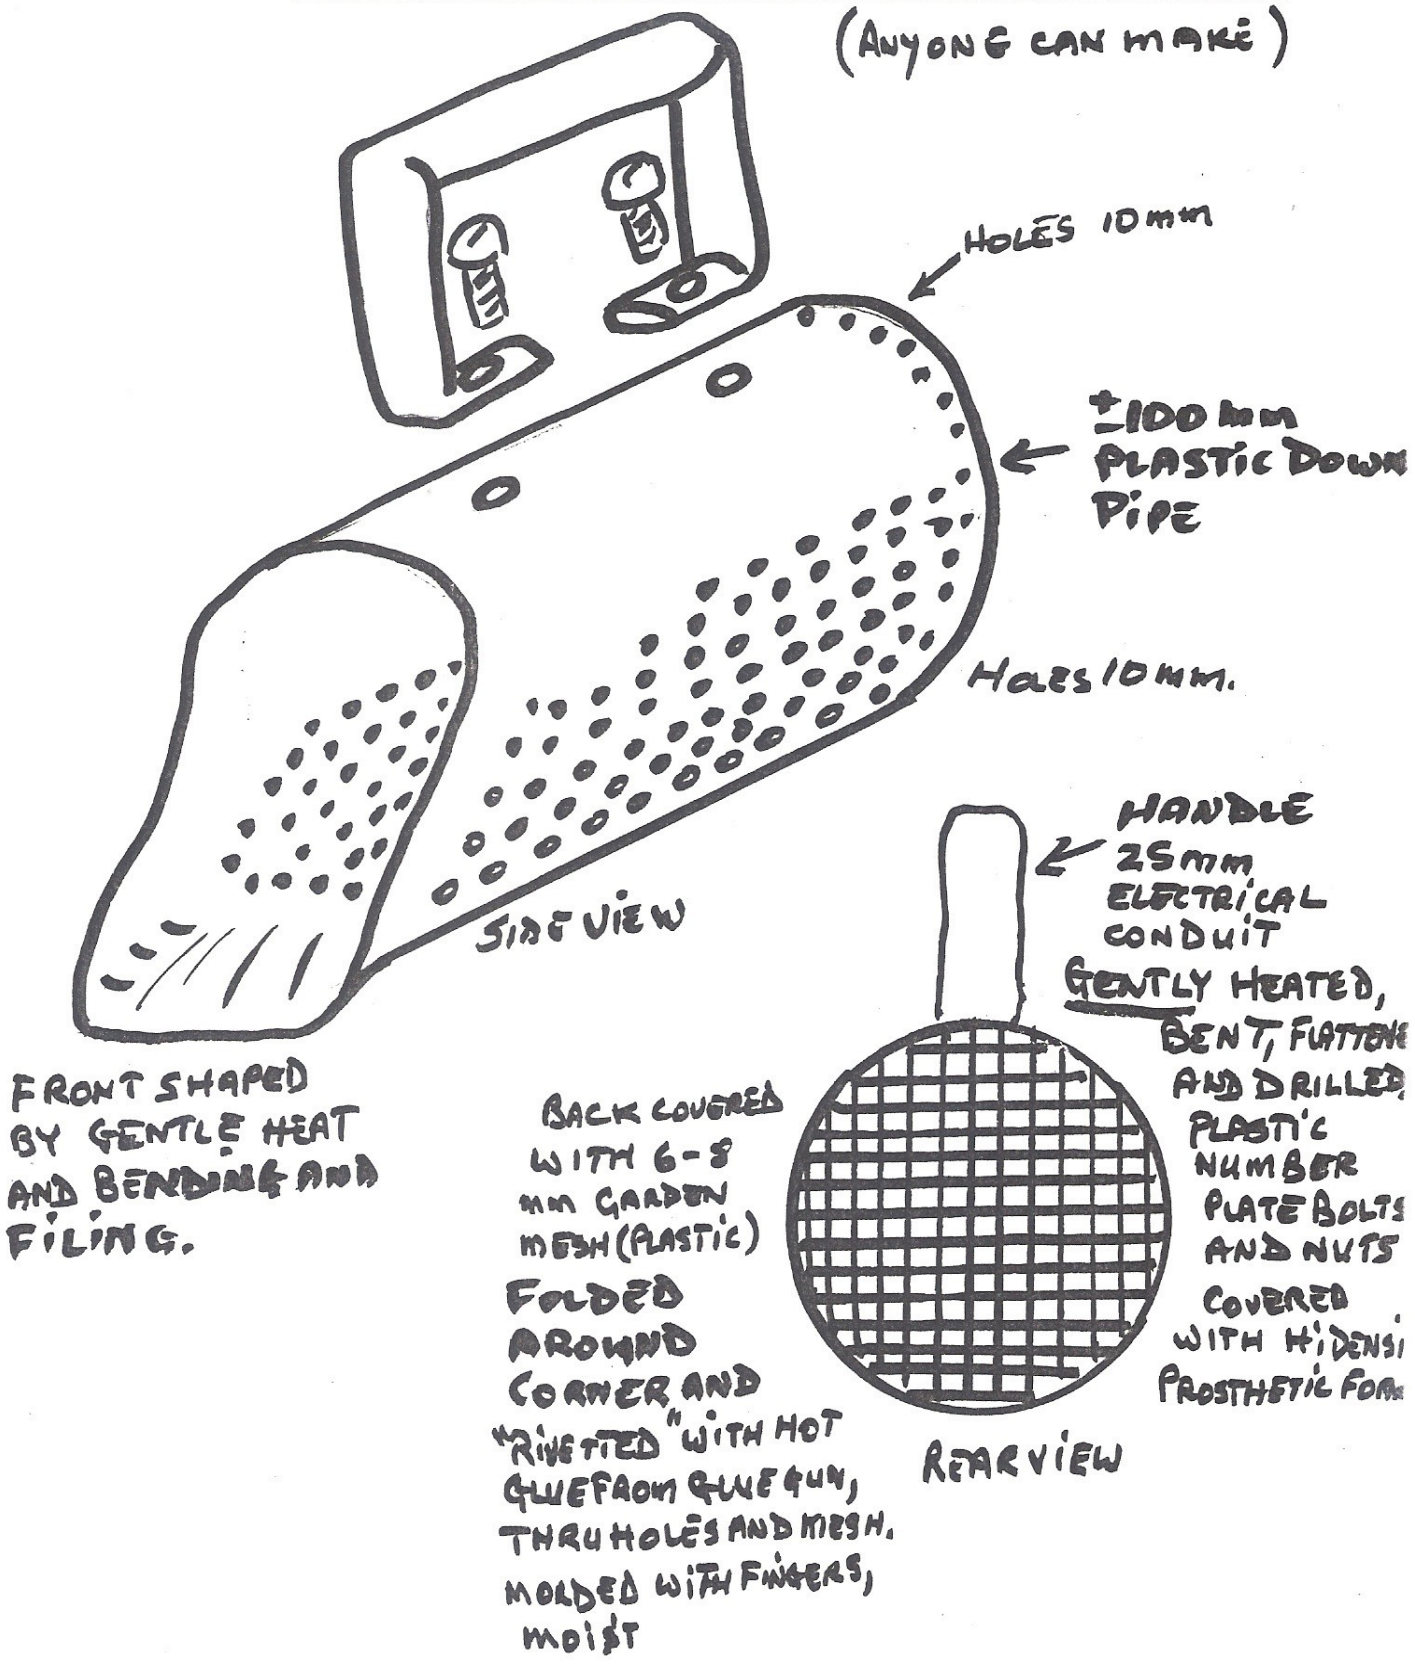 (ANYONE CAN MAKE)
HOLES 10mm
±100mm
PLASTIC DOWN
PIPE
HOLES 10mm.
SIDE VIEW
HANDLE
25mm
ELECTRICAL
CONDUIT
GENTLY HEATED,
BENT, FLATTENE
AND DRILLED,
PLASTIC
NUMBER
PLATE BOLTS
AND NUTS
COVERED
WITH HiDENSi
PROSTHETIC FOA
FRONT SHAPED
BY GENTLE HEAT
AND BENDING AND
FILING.
BACK COVERED
WITH 6-8
mm GARDEN
MESH (PLASTIC)
FOLDED
AROUND
CORNER, AND
"RIVETTED" WITH HOT
GLUE FROM GLUE GUN,
THRU HOLES AND MESH.
MOLDED WITH FINGERS,
MOIST
REAR VIEW